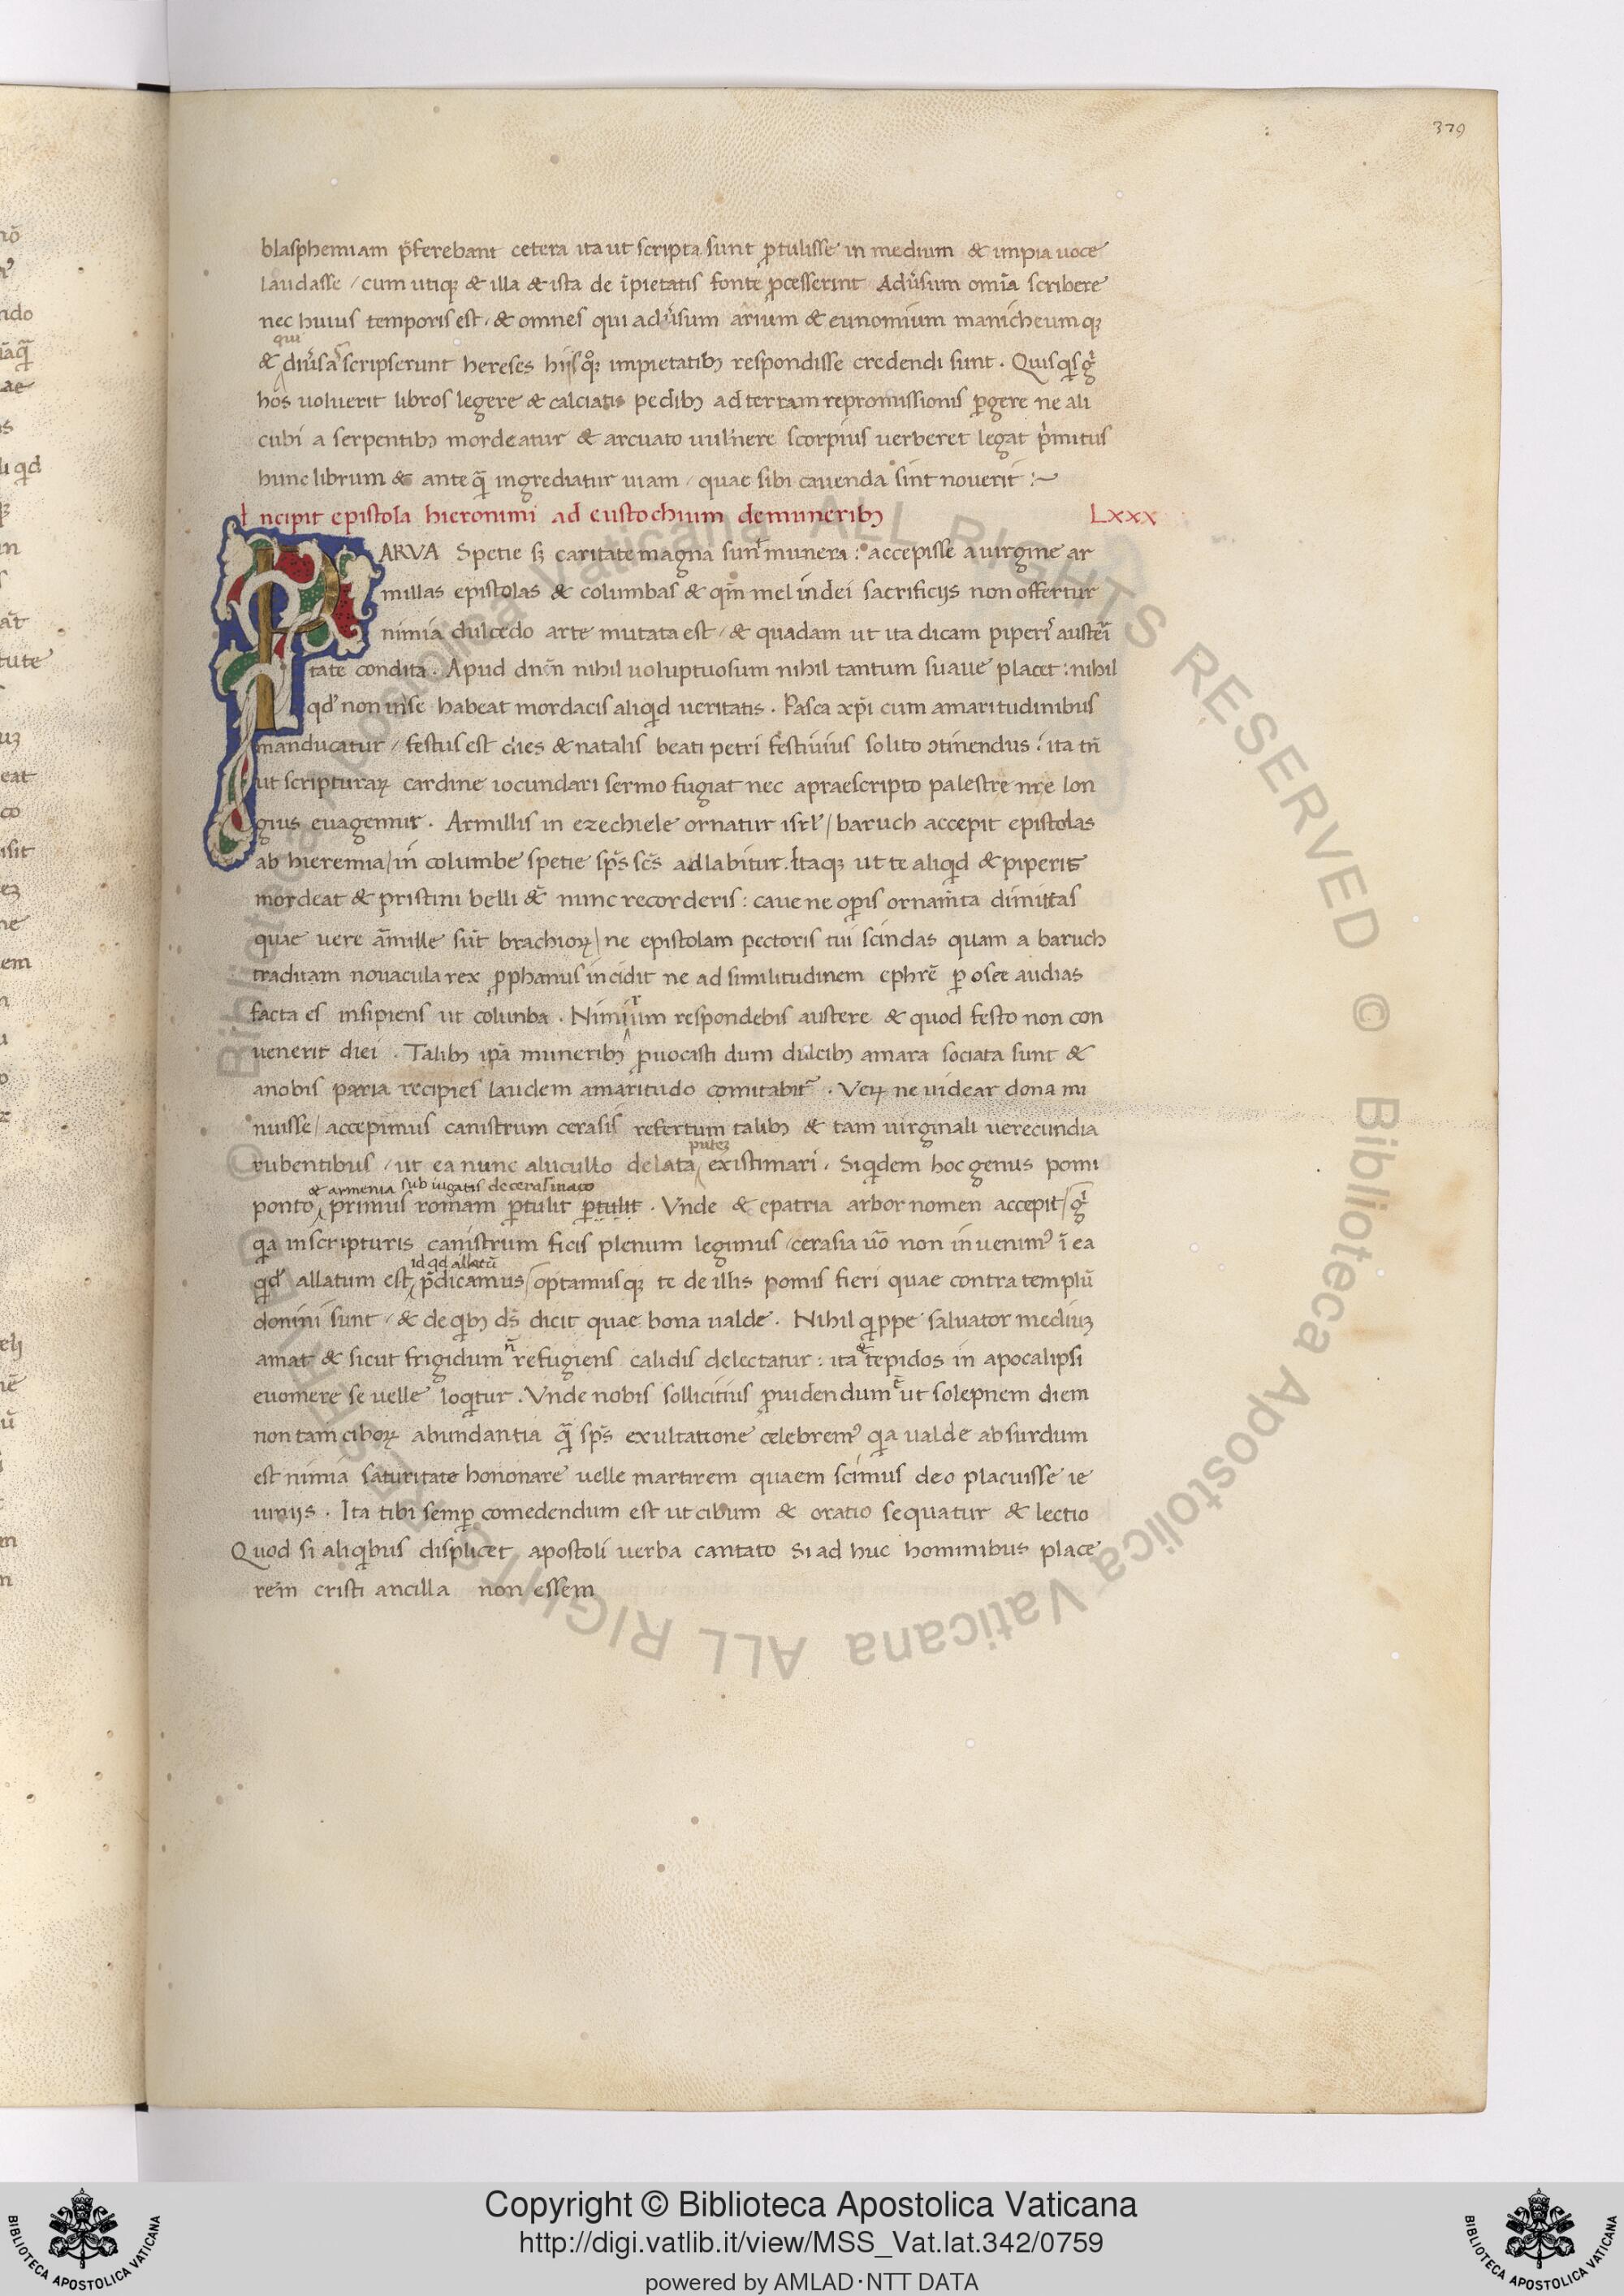 379
blasphemiam p̄ferebant cetera ita ut scripta sunt ꝓtulisse in medium & impia uoce
laudasse / cum utiqꝫ & illa & ista de īpietatis fonte ꝓcesserint Adűsum omīa scribere
nec huius temporis est · & omnes qui adűsum arium & eunomium manicheumqꝫ
qui
& diűsas scripserunt hereses hijsqꝫ impietatibꝫ respondisse credendi sunt · Quisqͥs gͥ
hos uoluerit libros legere & calciatis pedibꝫ ad terram repromissionis ꝑgere ne ali
cubi a serpentibꝫ mordeatur & arcuato uulnere scorpius uerberet legat pͥmitus
hunc librum & ante q̄ ingrediatur uiam / quae sibi cauenda sint nouerit :~
Incipit epistola hieronimi ad eustochium de muneribꝫ Lxxx
PARVA Spetie sꝫ caritate magna sunt munera : accepisse a uirgine ar
millas epistolas & columbas & qm̄ mel in dei sacrificijs non offertur
nimia dulcedo arte mutata est / & quadam ut ita dicam piperis austeri
tate condita · Apud dn̄m nihil uoluptuosum nihil tantum suaue placet : nihil
qd' non in se habeat mordacis aliqͥd ueritatis · Pasca xp̄i cum amaritudinibus
manducatur / festus est dies & natalis beati petri festiuius solito ↄtinendus : ita tn̄
ut scripturaꝝ cardine iocundari sermo fugiat nec a praescripto palestre nr̄e lon
gius euagemur · Armillis in ezechiele ornatur isrl' / baruch accepit epistolas
ab hieremia / in columbe spetie sp̄s sc̄s adlabitur . Itaqꝫ ut te aliqͥd & piperis
mordeat & pristini belli &̄ nunc recorderis : caue ne oꝑis ornam̄ta dimittas
quae uere armille sūt brachioꝝ / ne epistolam pectoris tui scindas quam a baruch
traditam nouacula rex ꝓphanus incidit ne ad similitudinem ephrē ꝑ osee audias
facta es insipiens ut colunba · Nimium respondebis austere & quod festo non con
uenerit diei · Talibꝫ ip̄a muneribꝫ ꝓuocasti dum dulcibꝫ amara sociata sunt &
a nobis paria recipies laudem amaritudo comitabit᷑ · Veꝝ ne uidear dona mi
nuisse / accepimus canistrum cerasis refertum talibꝫ & tam uirginali uerecundia
putez
rubentibus / ut ea nunc a lucullo delata existimari · Siqͥdem hoc genus pomi
& armenia sub iugatis de cerasinaco
ponto primus romam ꝑtulit ꝑtulit · Vnde & e patria arbor nomen accepit / gͥ
qͥa in scripturis canistrum ficis plenum legimus / cerasia uō non inuenimꝰ ī ea
id qd allatū
qͥd' allatum est p̄dicamus / optamusqꝫ te de illis pomis fieri quae contra templū
domini sunt / & de qͥbꝫ ds̄ dicit quae bona ualde · Nihil qͥppe saluator mediuꝫ
amat & sicut frigidum n̄ refugiens calidis delectatur : ita & tepidos in apocalipsi
euomere se uelle loqͥtur · Vnde nobis sollicitius ꝓuidendum ē ut solepnem diem
non tam ciboꝝ abundantia q̄ sp̄s exultatione celebremꝰ qͥa ualde absurdum
est nimia saturitate hononare uelle martirem quaem scimus deo placuisse ie
iunijs · Ita tibi semꝑ comedendum est ut cibum & oratio sequatur & lectio
Quod si aliqͥbus displicet apostoli uerba cantato Si ad huc hominibus place
rem cristi ancilla non essem
Copyright © Biblioteca Apostolica Vaticana
http://digi.vatlib.it/view/MSS_Vat.lat.342/0759
powered by AMLAD·NTT DATA
BIBLIOTECA APOSTOLICA VATICANA
BIBLIOTECA APOSTOLICA VATICANA
© Biblioteca Apostolica Vaticana ALL RIGHTS RESERVED © Biblioteca Apostolica Vaticana ALL RIGHTS RESERVED